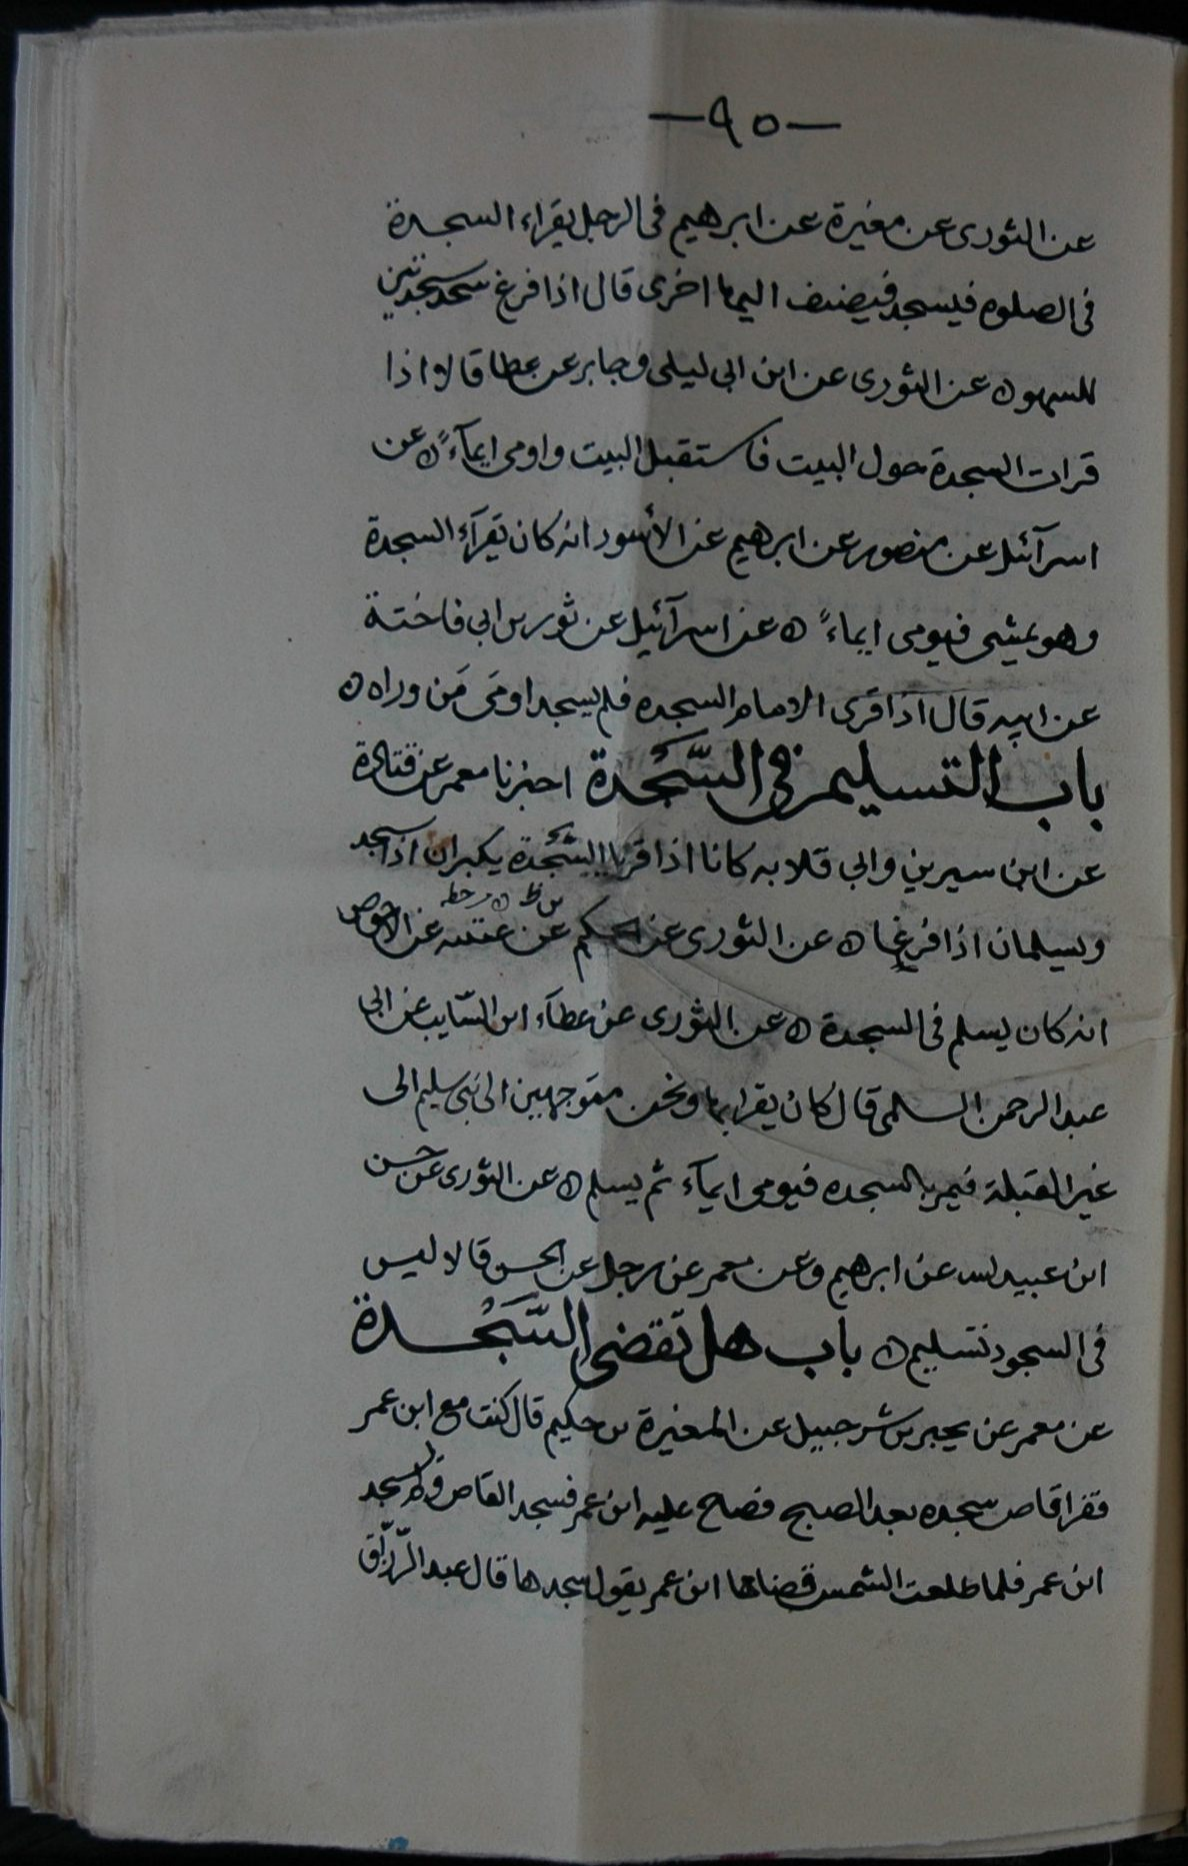 — ٩٥ —
عن الثورى عن مغيرة عن ابرهيم فى الرجل يقراء السجدة
فى الصلوه فيسجد فيضيف اليها اخرى قال اذا فرغ سجد سجدتين
للسهو ٥ عن الثورى عن ابن ابى ليلى وجابر عن عطا قالا اذا
قرات السجدة حول البيت فاستقبل البيت واومى ايمآءً ٥ عن
اسرآئيل عن منصور عن ابرهيم عن الأسود انه كان يقرآء السجدة
وهو يمشى فيومى ايماءً ٥ عن اسرآئيل عن ثور بن ابى فاختة
عن ابيه قال اذا قرى الامام السجده فلم يسجد اومَى مَن وراه ٥
باب التسليم فى السَّجْدة اخبرنا معمر عن قتادة
عن ابن سيرين وابى قلابه كانا اذا قريا السَّجْدة يكبران اذا سجد
ويسلمان اذا فرغا ٥ عن الثورى عن الحكم عن عن الاحوص
انه كان يسلم فى السجدة ٥ عن الثورى عن عطآء ابن السّايب عن ابى
عبد الرحمن السلمى قال كان يقرا بها ونحن متوجهين الى بنى سليم الى
غير القبلة فيمر بالسجده فيومى ايمآء ثم يسلم ٥ عن الثورى عن حسن
ابن عبيد الله عن ابرهيم وعن معمر عن رجل عن الحسن قالا ليس
فى السجود تسليم ٥ باب هل تقضى السَّجْدة
عن معمر عن يحير بن شرحبيل عن المغيرة بن حكيم قال كنت مع ابن عمر
فقرا قاص سجده بعد الصبح فصاح عليه ابن عمر فسجد القاص ولم يسجد
ابن عمر فلما طلعت الشمس قضاها ابن عمر يقول سجدها قال عبد الرّزّاق